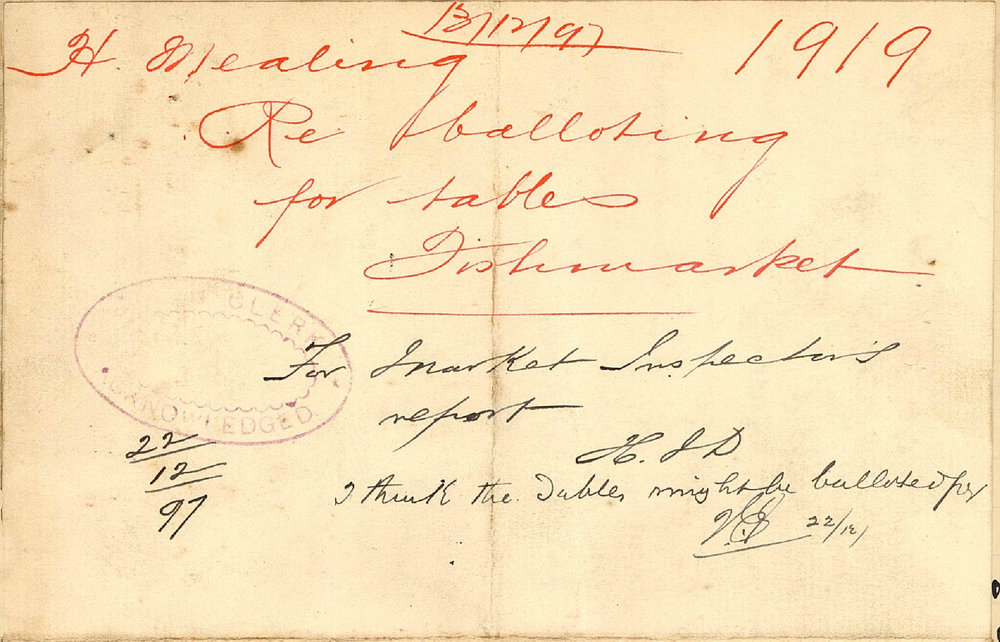 13/12/97
H. Mealing 1919
Re balloting
for tables
Fishmarket
CLERK
ACKNOWLEDGED.
For Market Inspector's
report
H. J D
22
12
97
I think the Tables might be balloted for
22/12/